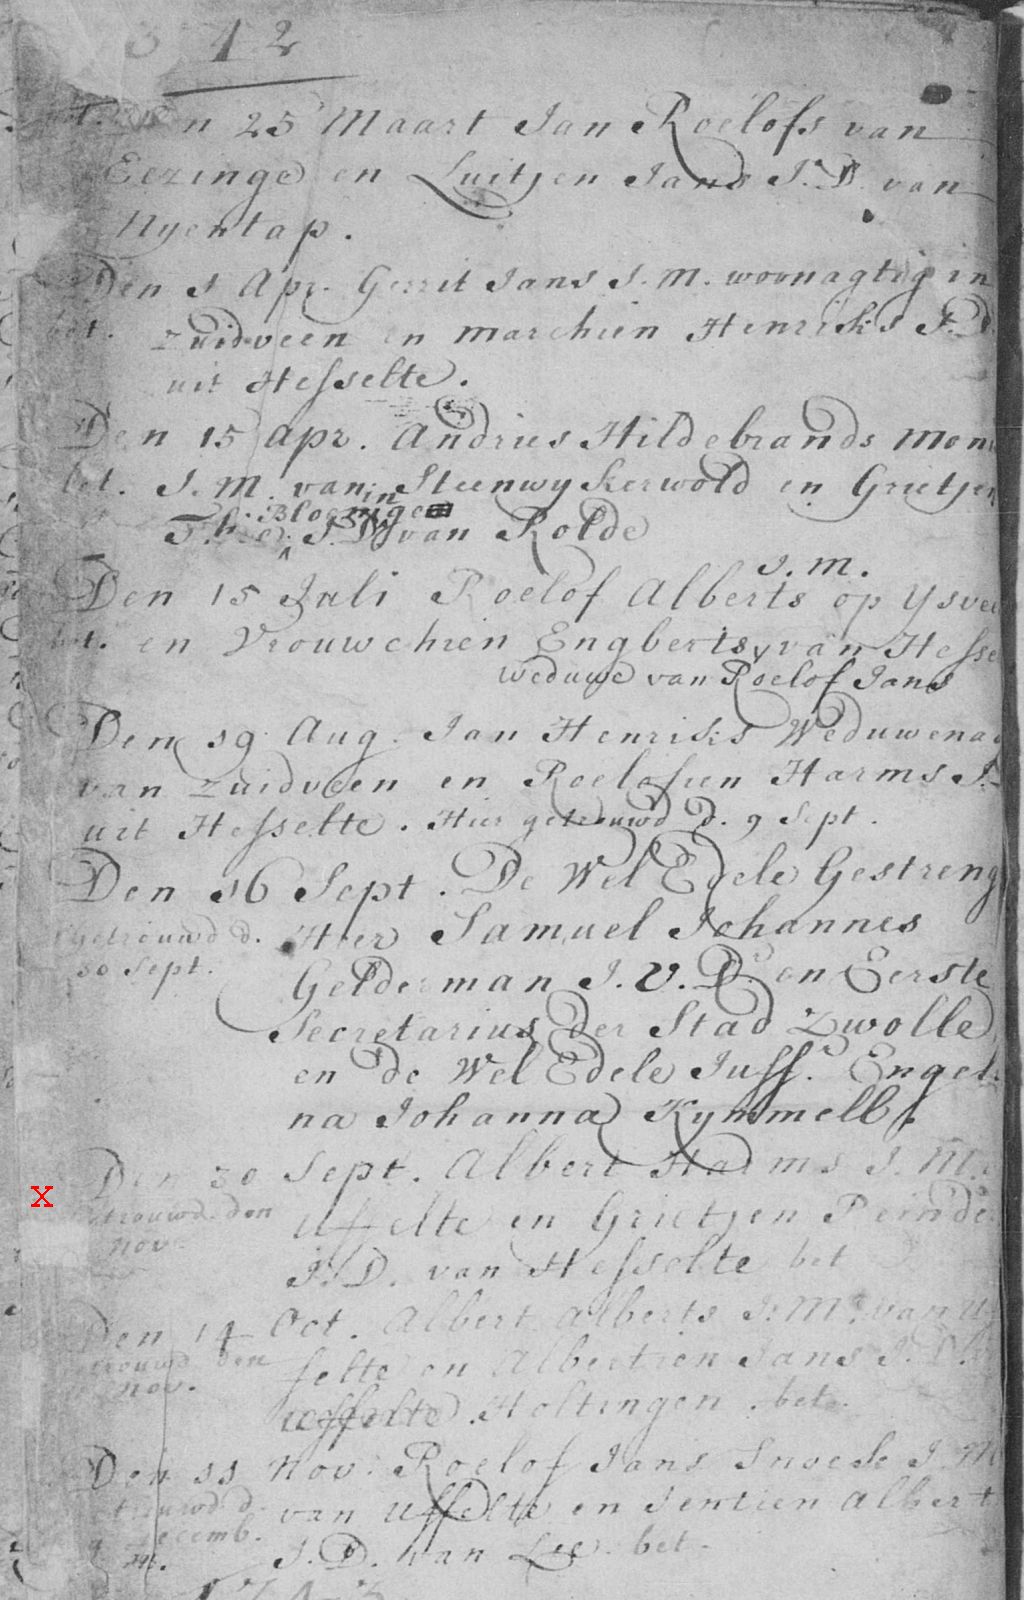 42
Den 25 Maart Jan Roelofs van
Eezinge en Luitjen Jans J. D. van
Nyentap.
Den 1 Apr. Gerrit Jans J. M. woonagtig in
bet. Zuidveen en Marchien Henriks J. D.
uit Hesselte.
Den 15 Apr. Andries Hildebrands
bet. J. M. van Steenwykerwold en Grietjen
in Bloeminge
van Rolde
J. M.
Den 15 Juli Roelof Alberts op Ysvee
bet. en Vrouwchien Engberts van Hesse
Weduwe van Roelof Jans
Den 19 Aug. Jan Henriks Weduwenaa
van Zuidveen en Roelofien Harms J.
uit Hesselte. Hier getrouwd d. 9 Sept.
Den 16 Sept. De Wel Edele Gestreng
getrouwd d. Heer Samuel Johannes
30 Sept.
Gelderman J. V. D. en Eerste
Secretarius der Stad Zwolle
en de Wel Edele Juffr. Engeli
na Johanna Kymmell.
Den 30 Sept. Albert Harms J. M.
X
trouwd den Uffelte en Grietjen
nov.
J. D. van Hesselte bet
Den 14 Oct. Albert Alberts J. M. van U
trouwd den felte en Albertien Jans J. D.
nov.
Uffelte Holtingen. bet.
Den 11 Nov. Roelof Jans Snoek J. M
trouwd d. van Uffelte en Jentien Albert
9 Decemb.
J. D. van Lee. bet.